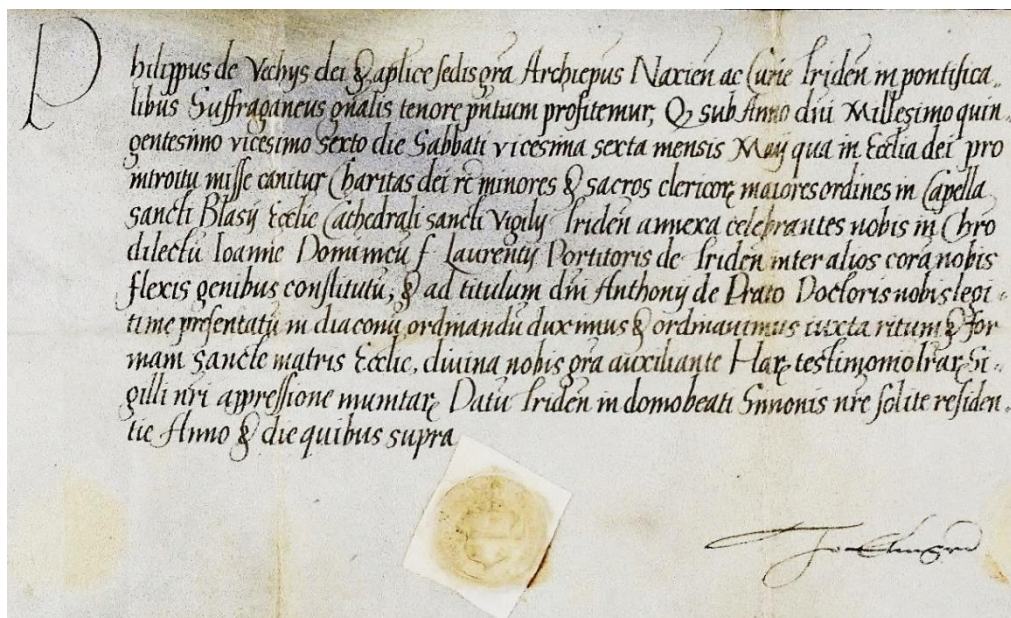 Philippus de Vechys dei & aplice sedis grã Archiepus Naxien ac Curie Triden̄ in pontifica..
libus Suffraganeus gn̄alis tenore pn̄tium profitemur, Q̢ sub Anno dn̄i Millesimo quin,
gentesimo vicesimo sexto die Sabbati vicesima sexta mensis Maij qua in Ecclīa dei pro
introitu misse canitur Charitas dei rc̄ minores & sacros clericoꝝ maiores ordines in Capella
sancti Blasij Ecclīe Cathedrali sancti Vigilij Triden̄ annexa celebrantes nobis in Chrõ
dilectũ Ioannẽ Dominicũ f Laurentij Portitoris de Triden̄ inter alios corã nobis
flexis genibus constitutũ, & ad titulum dn̄i Anthonij de Prato Doctoris nobis legi..
time presentatũ in diaconũ ordinandũ duximus & ordinauimus iuxta ritum & for
mam sancte matris Ecclīe, diuina nobis grã auxiliante Haꝝ testimonio lr̄aꝝ Si..
gilli nr̄i appressione munitaꝝ Datũ Triden̄ in domo beati Simonis nr̄e solite residen..
tie Anno & die quibus supra